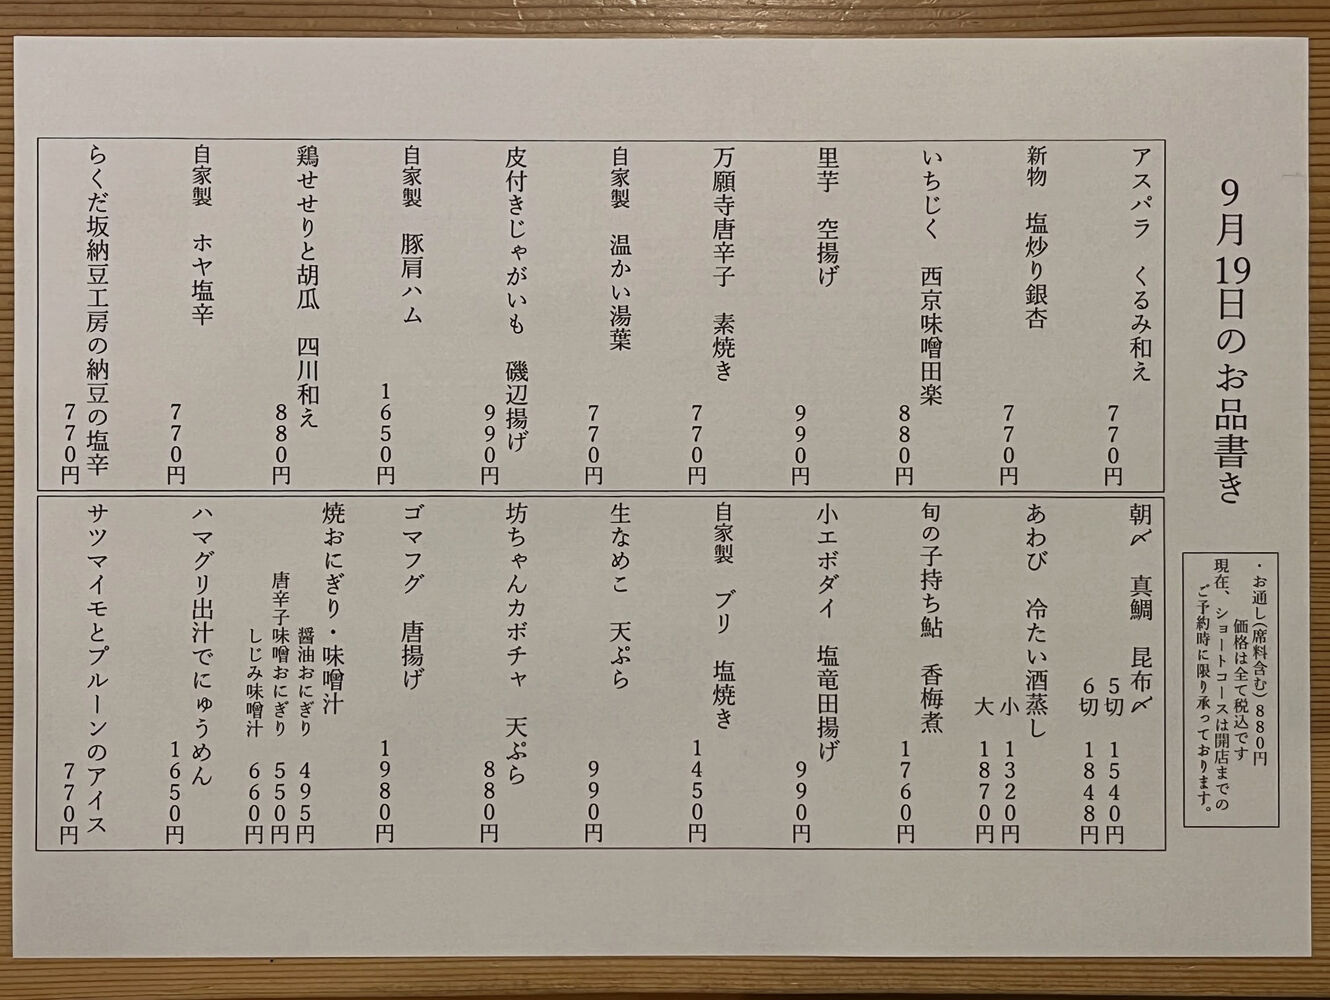 9月19日のお品書き
・お通し(席料含む)880円
価格は全て税込です
現在、ショートコースは開店までの
ご予約時に限り承っております。
アスパラ　くるみ和え
770円
新物　塩炒り銀杏
770円
いちじく　西京味噌田楽
880円
里芋　空揚げ
990円
万願寺唐辛子　素焼き
770円
自家製　温かい湯葉
770円
皮付きじゃがいも　磯辺揚げ
990円
自家製　豚肩ハム
1650円
鶏せせりと胡瓜　四川和え
880円
自家製　ホヤ塩辛
770円
らくだ坂納豆工房の納豆の塩辛
770円
朝〆　真鯛　昆布〆
5切　1540円
6切　1848円
あわび　冷たい酒蒸し
小　1320円
大　1870円
旬の子持ち鮎　香梅煮
1760円
小エボダイ　塩竜田揚げ
990円
自家製　ブリ　塩焼き
1450円
生なめこ　天ぷら
990円
坊ちゃんカボチャ　天ぷら
880円
ゴマフグ　唐揚げ
1980円
焼おにぎり・味噌汁
醤油おにぎり　495円
唐辛子味噌おにぎり　550円
しじみ味噌汁　660円
ハマグリ出汁でにゅうめん
1650円
サツマイモとプルーンのアイス
770円